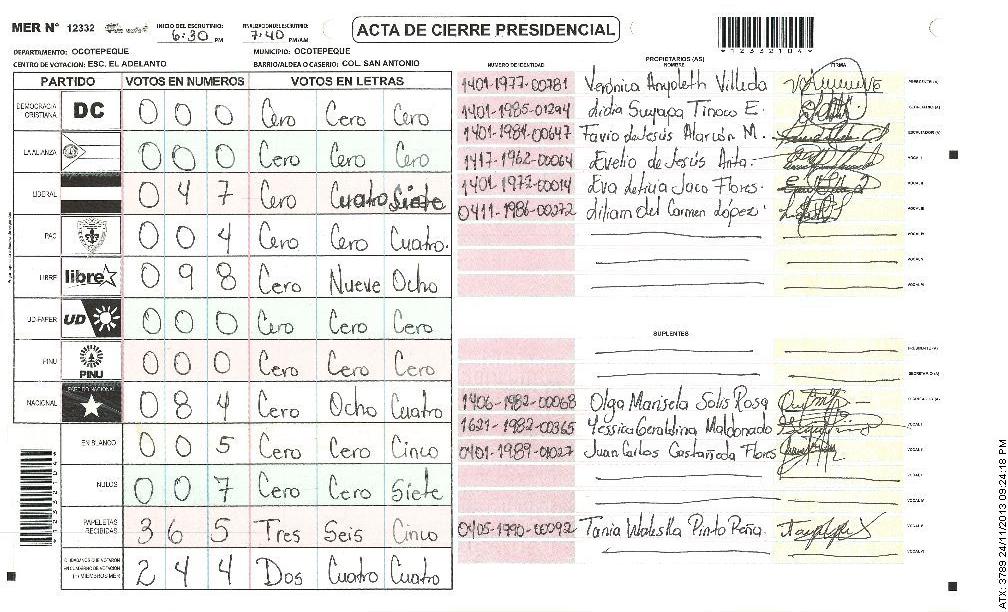 MER N° 12332
INICIO DEL ESCRUTINIO: 6:30 PM
FINALIZACION ESCRUTINIO: 7:40 PM/AM
ACTA DE CIERRE PRESIDENCIAL
DEPARTAMENTO: OCOTEPEQUE
MUNICIPIO: OCOTEPEQUE
CENTRO DE VOTACION: ESC. EL ADELANTO
BARRIO/ALDEA O CASERIO: COL. SAN ANTONIO
PARTIDO VOTOS EN NUMEROS VOTOS EN LETRAS
DEMOCRACIA CRISTIANA DC 0 0 0 Cero Cero Cero
LA ALIANZA 0 0 0 Cero Cero Cero
LIBERAL 0 4 7 Cero Cuatro Siete
PAC 0 0 4 Cero Cero Cuatro.
LIBRE libre 0 9 8 Cero Nueve Ocho
UD-FAPER UD 0 0 0 Cero Cero Cero
PINU PINU 0 0 0 Cero Cero Cero
NACIONAL PARTIDO NACIONAL 0 8 4 Cero Ocho Cuatro
EN BLANCO 0 0 5 Cero Cero Cinco
NULOS 0 0 7 Cero Cero Siete
PAPELETAS RECIBIDAS 3 6 5 Tres Seis Cinco
CIUDADANOS QUE VOTARON 2 4 4 Dos Cuatro Cuatro
*12332104*
PROPIETARIOS (AS)
NUMERO DE IDENTIDAD NOMBRE FIRMA
1401-1977-00781 Verónica Villeda PRESIDENTE (A)
1401-1985-01294 Suyapa Tinoco E. SECRETARIO (A)
1401-1984-00647 Favio de Jesús Alarcón M. ESCRUTADOR (A)
1417-1962-00064 Evelio de Jesús VOCAL I
1401-1972-00014 Eva Leticia Jaco Flores. VOCAL II
0411-1986-00272 del Carmen López. VOCAL III
VOCAL IV
VOCAL V
VOCAL VI
SUPLENTES
PRESIDENTE (A)
SECRETARIO (A)
1406-1982-00068 Olga Marisela Solis Rosa ESCRUTADOR (A)
1621-1982-00365 Yessica Geraldina Maldonado VOCAL I
0401-1989-01027 Juan Carlos Castañeda Flores VOCAL II
0405-1990-00292 Tania Pinto Peña. VOCAL V
ATX: 3789 24/11/2013 09:24:18 PM